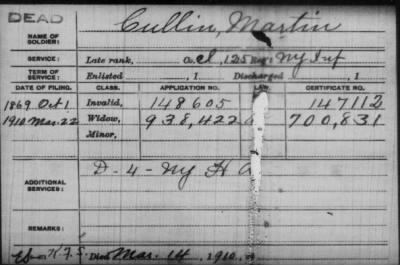 DEAD
NAME OF SOLDIER: Cullin, Martin
SERVICE: Late rank, Co. I, 125 Reg't NY Inf
TERM OF SERVICE: Enlisted , 1 Discharged , 1
DATE OF FILING. CLASS. APPLICATION NO. LAW. CERTIFICATE NO.
1869 Oct 1 Invalid, 148605 147112
1910 Mar. 22 Widow, 938,422 700,831
Minor,
ADDITIONAL SERVICES: D-4-NY H A
REMARKS:
Died Mar. 14, 1910,